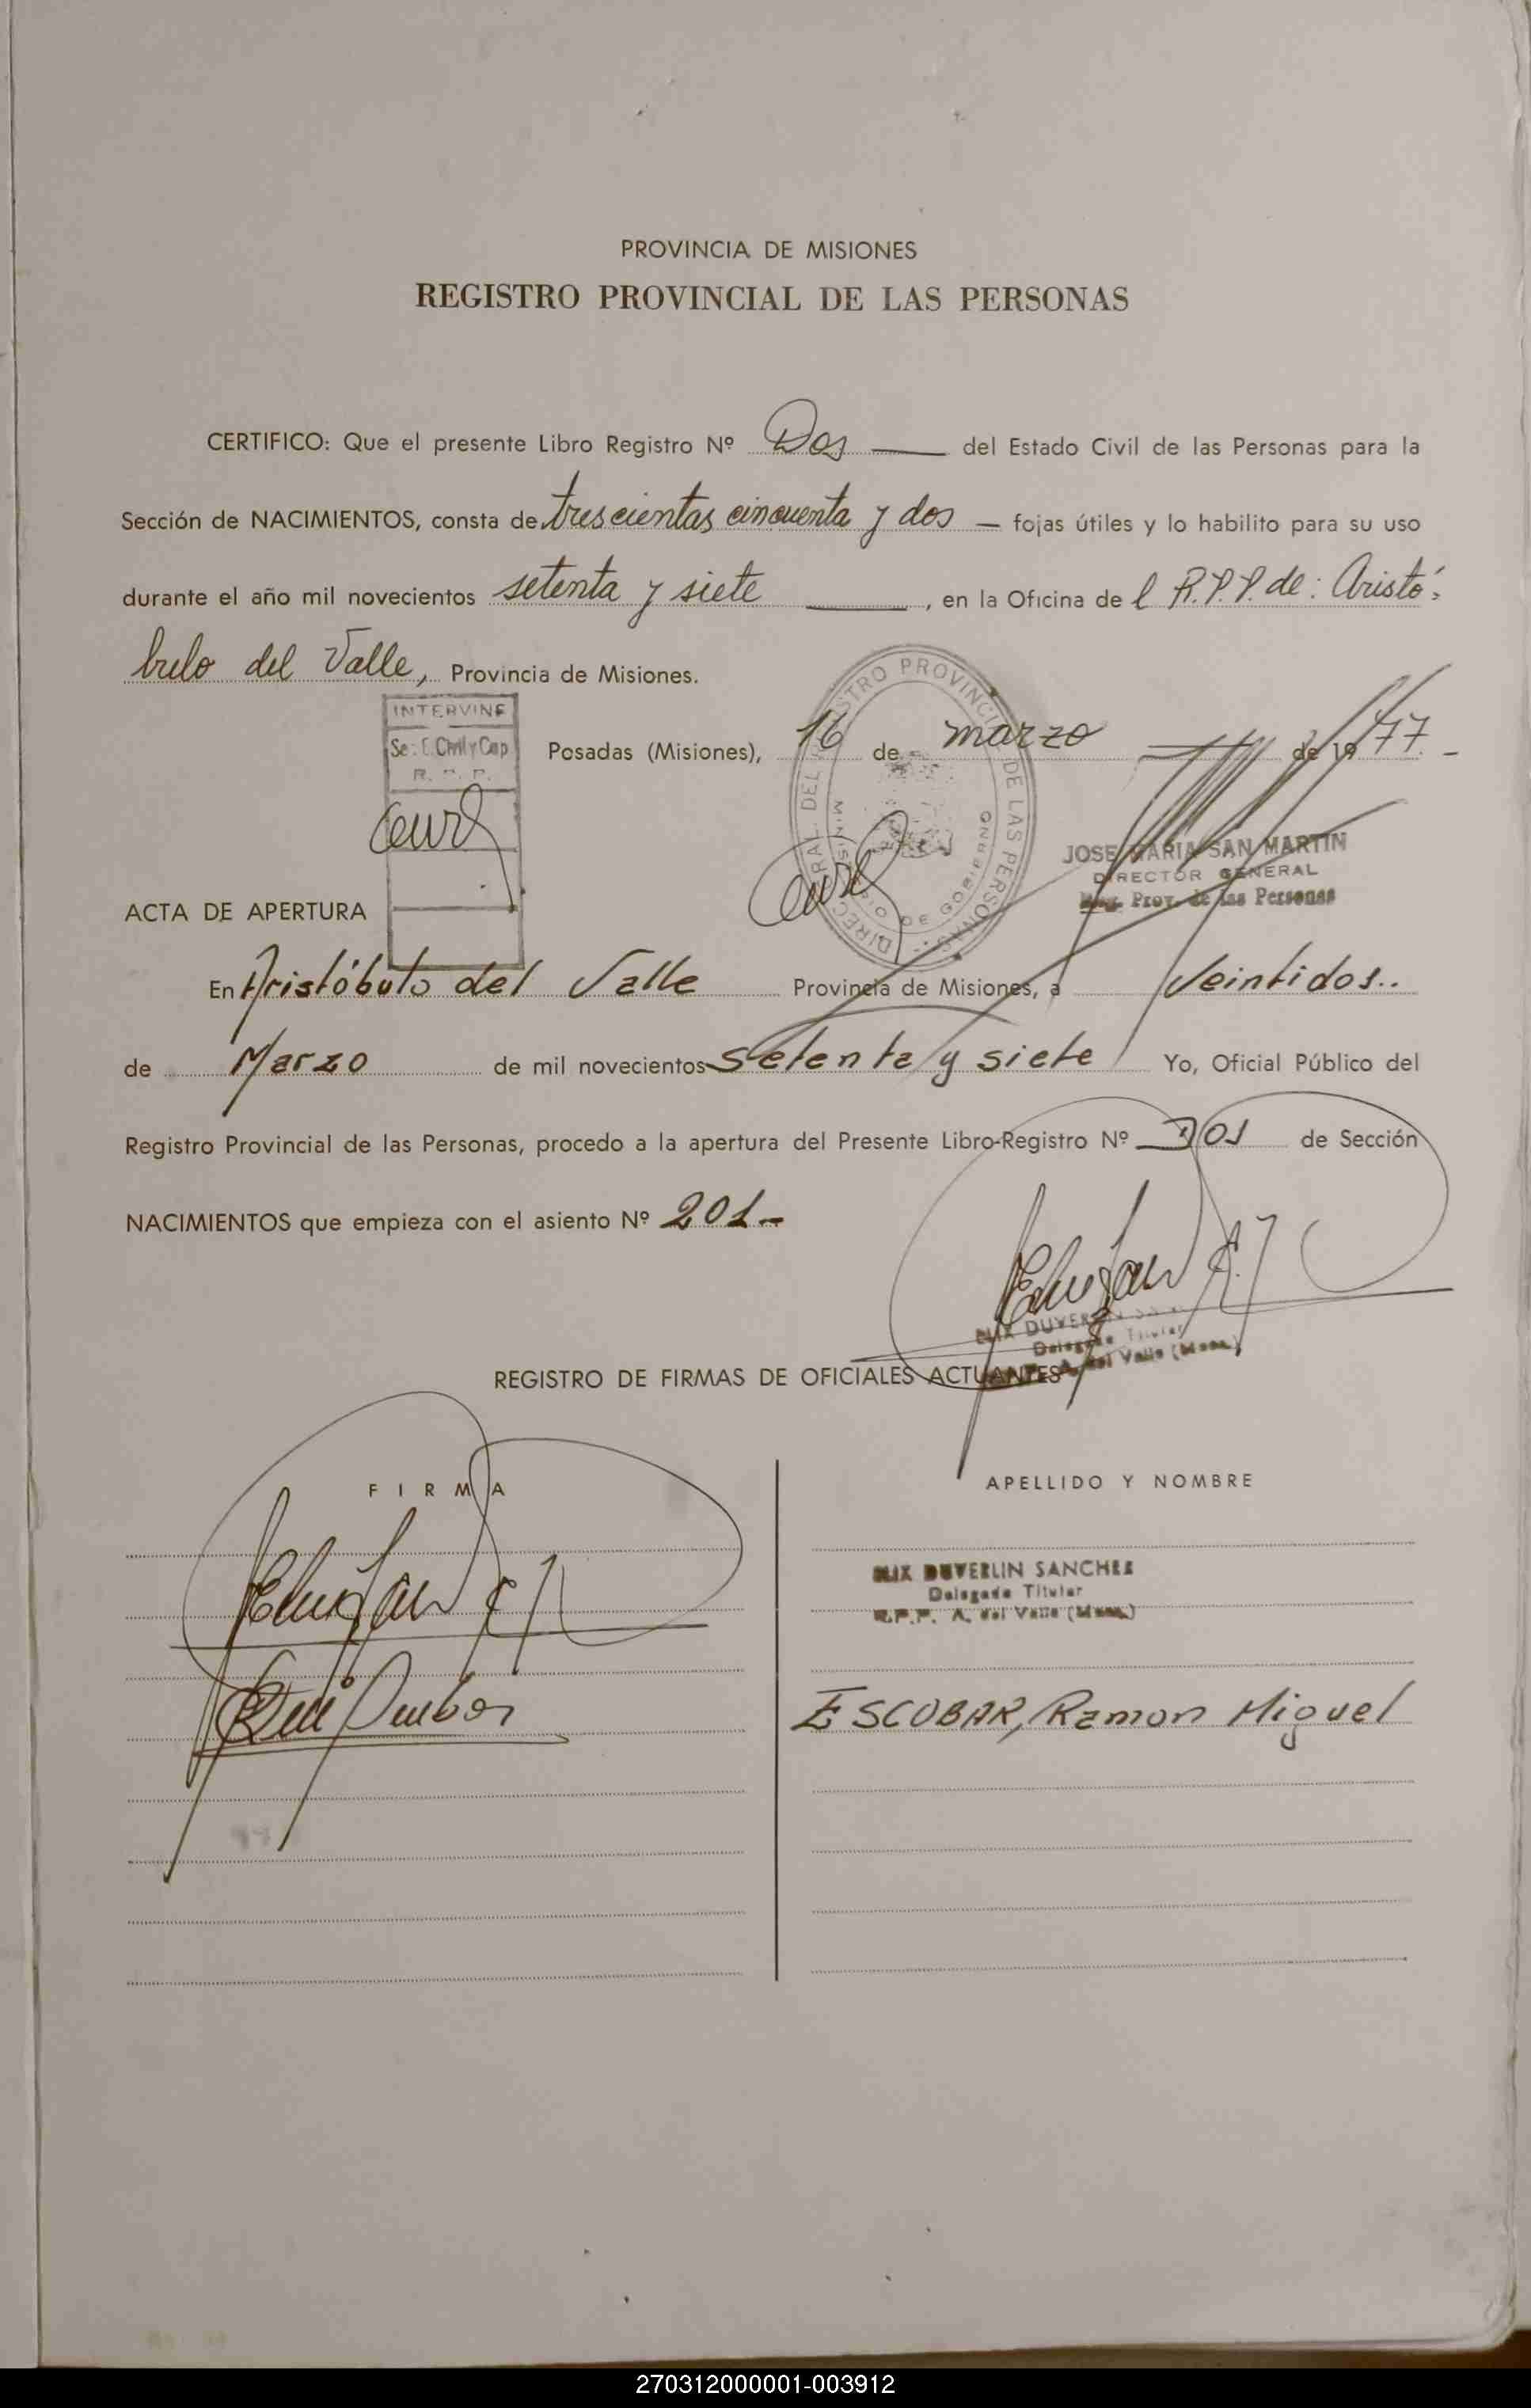 PROVINCIA DE MISIONES
REGISTRO PROVINCIAL DE LAS PERSONAS
CERTIFICO: Que el presente Libro Registro Nº Dos — del Estado Civil de las Personas para la
Sección de NACIMIENTOS, consta de trescientas cincuenta y dos — fojas útiles y lo habilito para su uso
durante el año mil novecientos setenta y siete —, en la Oficina de l R.P.P. de: Aristó-
bulo del Valle, Provincia de Misiones.
INTERVINE
Posadas (Misiones), 16 de marzo de 1977-
JOSE MARIA SAN MARTIN
DIRECTOR GENERAL
Reg. Prov. de las Personas
ACTA DE APERTURA
En Aristóbulo del Valle Provincia de Misiones, a Veintidos..
de Marzo de mil novecientos setenta y siete Yo, Oficial Público del
Registro Provincial de las Personas, procedo a la apertura del Presente Libro-Registro Nº Dos de Sección
NACIMIENTOS que empieza con el asiento Nº 201-
Delegado Titular
A. del Valle (Mnes.)
REGISTRO DE FIRMAS DE OFICIALES ACTUANTES
FIRMA
APELLIDO Y NOMBRE
DUVERLIN SANCHES
Delegado Titular
R.P.P. A. del Valle (Mnes.)
ESCOBAR, Ramon Miguel
270312000001-003912